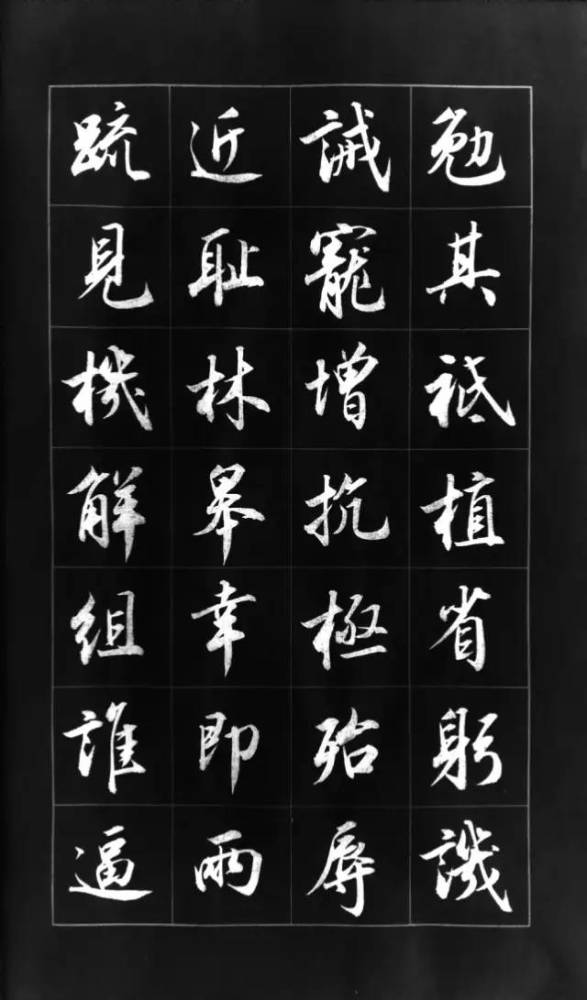 勉其祗植省躬譏
誡寵增抗極殆辱
近恥林皋幸即兩
疏見機解組誰逼